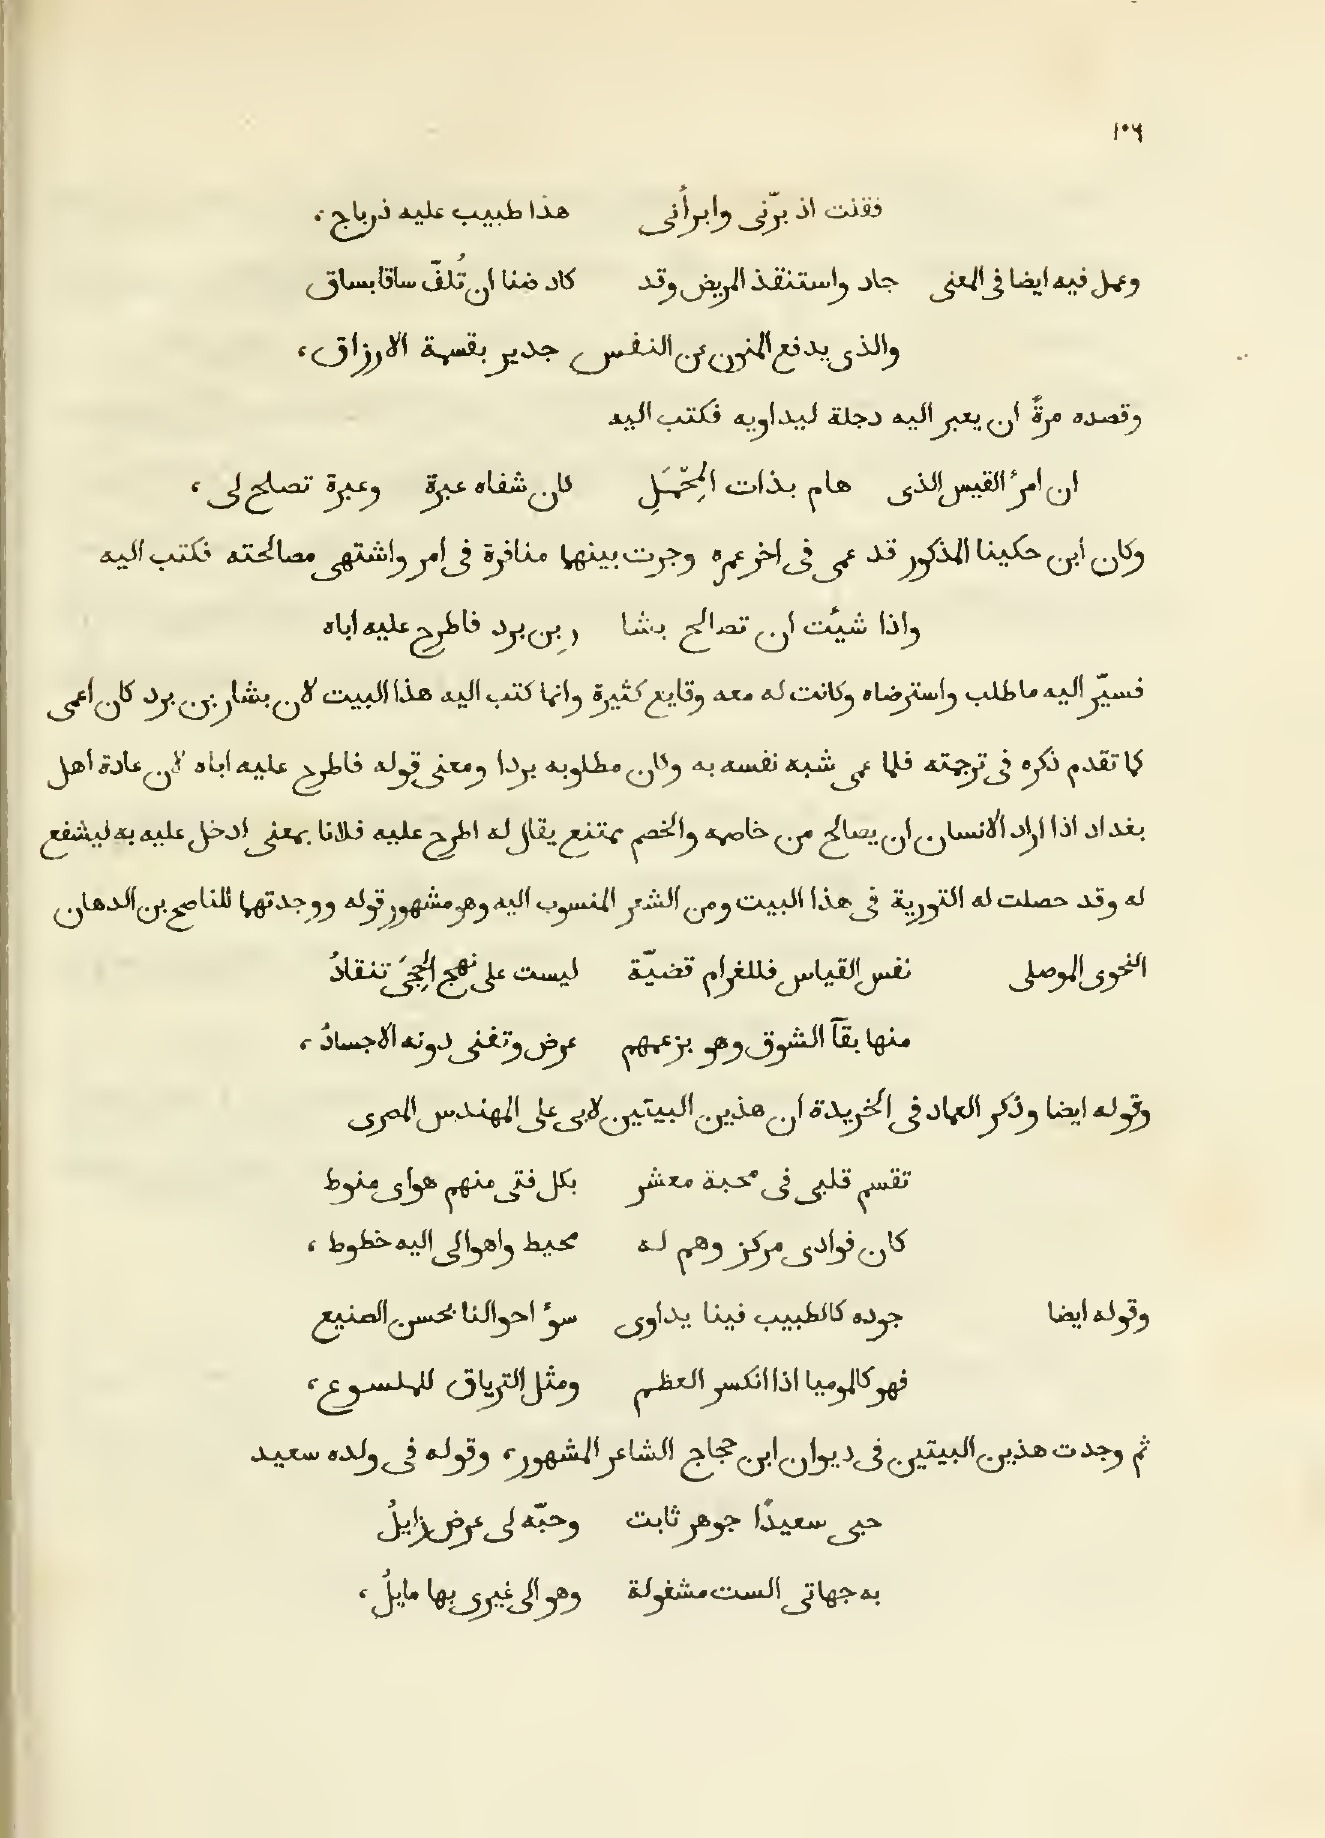 ١٠٦
فقلت اذ برّنى وابرأنى هذا طبيب عليه زرباج،
وعمل فيه ايضا فى المعنى جاد واستنقذ المريض وقد كاد ضنا ان تُلفّ ساقا بساق
والذى يدفع المنون عن النفس جدير بقسمة الارزاق،
وقصده مرةً ان يعبر اليه دجلة ليداويه فكتب اليه
ان امرأ القيس الذى هام بذات المِحْمَلِ كان شفاه عبرة وعبرة تصلح لى،
وكان ابن حكينا المذكور قد عمى فى اخر عمره وجرت بينهما منافرة فى امر واشتهى مصالحته فكتب اليه
واذا شيئت ان تصالح بشا ر بن برد فاطرح عليه اباه
فسيّر اليه ما طلب واسترضاه وكانت له معه وقايع كثيرة وانما كتب اليه هذا البيت لان بشار بن برد كان اعمى
كما تقدم ذكره فى ترجمته فلما عمى شبه نفسه به وكان مطلوبه بردا ومعنى قوله فاطرح عليه اباه لان عادة اهل
بغداد اذا اراد الانسان ان يصالح من خاصمه والخصم يمتنع يقال له اطرح عليه فلانا بمعنى ادخل عليه به ليشفع
له وقد حصلت له التورية فى هذا البيت ومن الشعر المنسوب اليه وهو مشهور قوله ووجدتهما للناصح بن الدهان
النحوى الموصلى نفس القياس فللغرام قضيّة ليست على نهج الحِجَى تنقادُ
منها بقآ الشوق وهو بزعمهم عرض وتفنى دونه الاجسادُ،
وقوله ايضا وذكر العماد فى الخريدة ان هذين البيتين لابى على المهندس المصرى
تقسم قلبى فى محبة معشر بكل فتى منهم هواى منوط
كان فوادى مركز وهم له محيط واهوالى اليه خطوط،
وقوله ايضا جوده كالطبيب فينا يداوى سوٴ احوالنا بحسن الصنيع
فهو كالموميا اذا انكسر العظم ومثل الترياق للملسوع،
ثم وجدت هذين البيتين فى ديوان ابن حجاج الشاعر المشهور، وقوله فى ولده سعيد
حبى سعيدًا جوهر ثابت وحبّه لى عرض زايلُ
به جهاتى الست مشغولة وهو الى غيرى بها مايلُ،